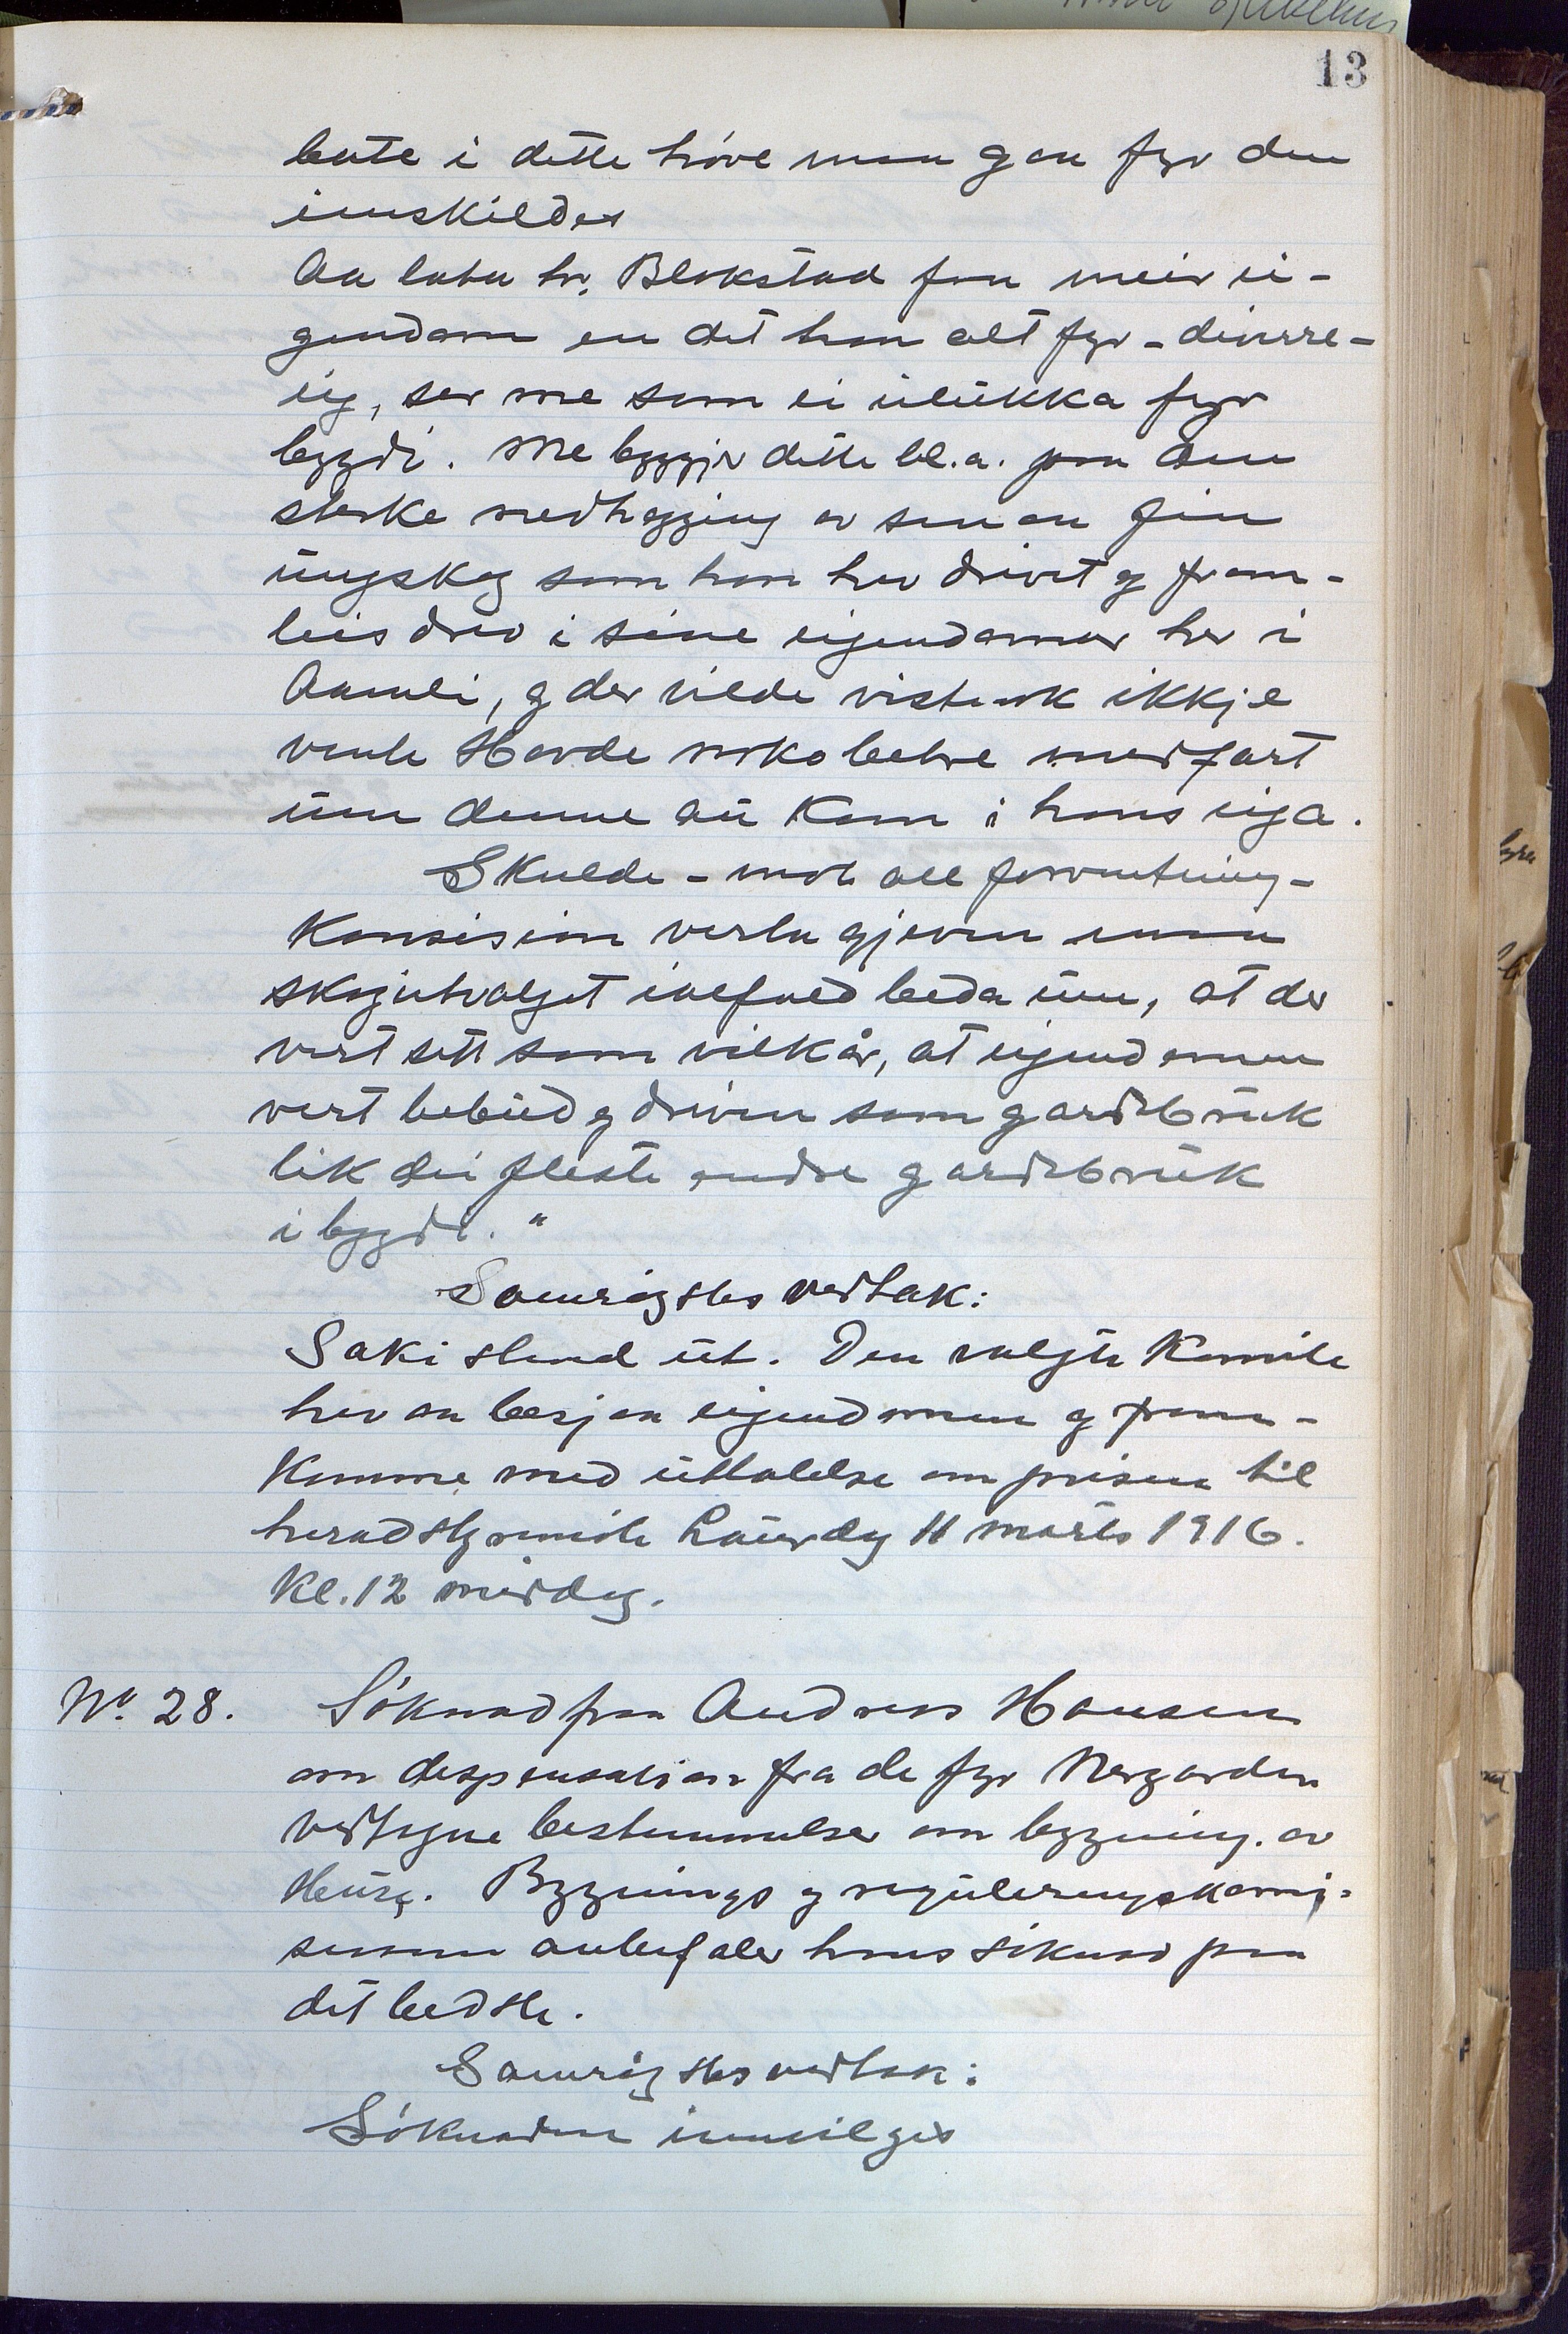 13
beste i dette høve maa gaa fyr den
einskildes
Aa lata hr. Blakstad faa meir ei-
gendom en det han alt fyr - diverre -
eig, ser me som ei ulukka fyr
bygdi. Me byggjer dette bl.a. paa den
sterke nedhogging av smaa fin
ungskog som han hev drivet og fram-
leis driv i sine eigendomar her i
Aamli, og der vilde vistnok ikkje
vente Hovde noko betre medfart
um denne au kom i hans eiga.
Skulde - mot all forventning -
Konsesion verta gjeven maa
skogutvalget ialfald beda um, at der
vert sett som vilkår, at eigendomen
vert bebudd og driven som gardsbruk
lik dei fleste andre gardsbruk
i bygdi."
Samrøystes vedtak:
Saki stend ut. Den valgte Komite
hev aa besjaa eigendomen og fram-
komme med uttalelse om prisen til
heradstyremöte Laurdag 11 marts 1916.
Kl. 12 middag.
No. 28. Söknad fraa Andreas Hansen
om dispensation fra de fyr Nergarden
vedtegne bestemmelser om bygning av
Huse. Bygnings og reguleringskomi-
sionen anbefaler hans söknad paa
det bedste.
Samrøystes vedtak:
Söknaden innvilges